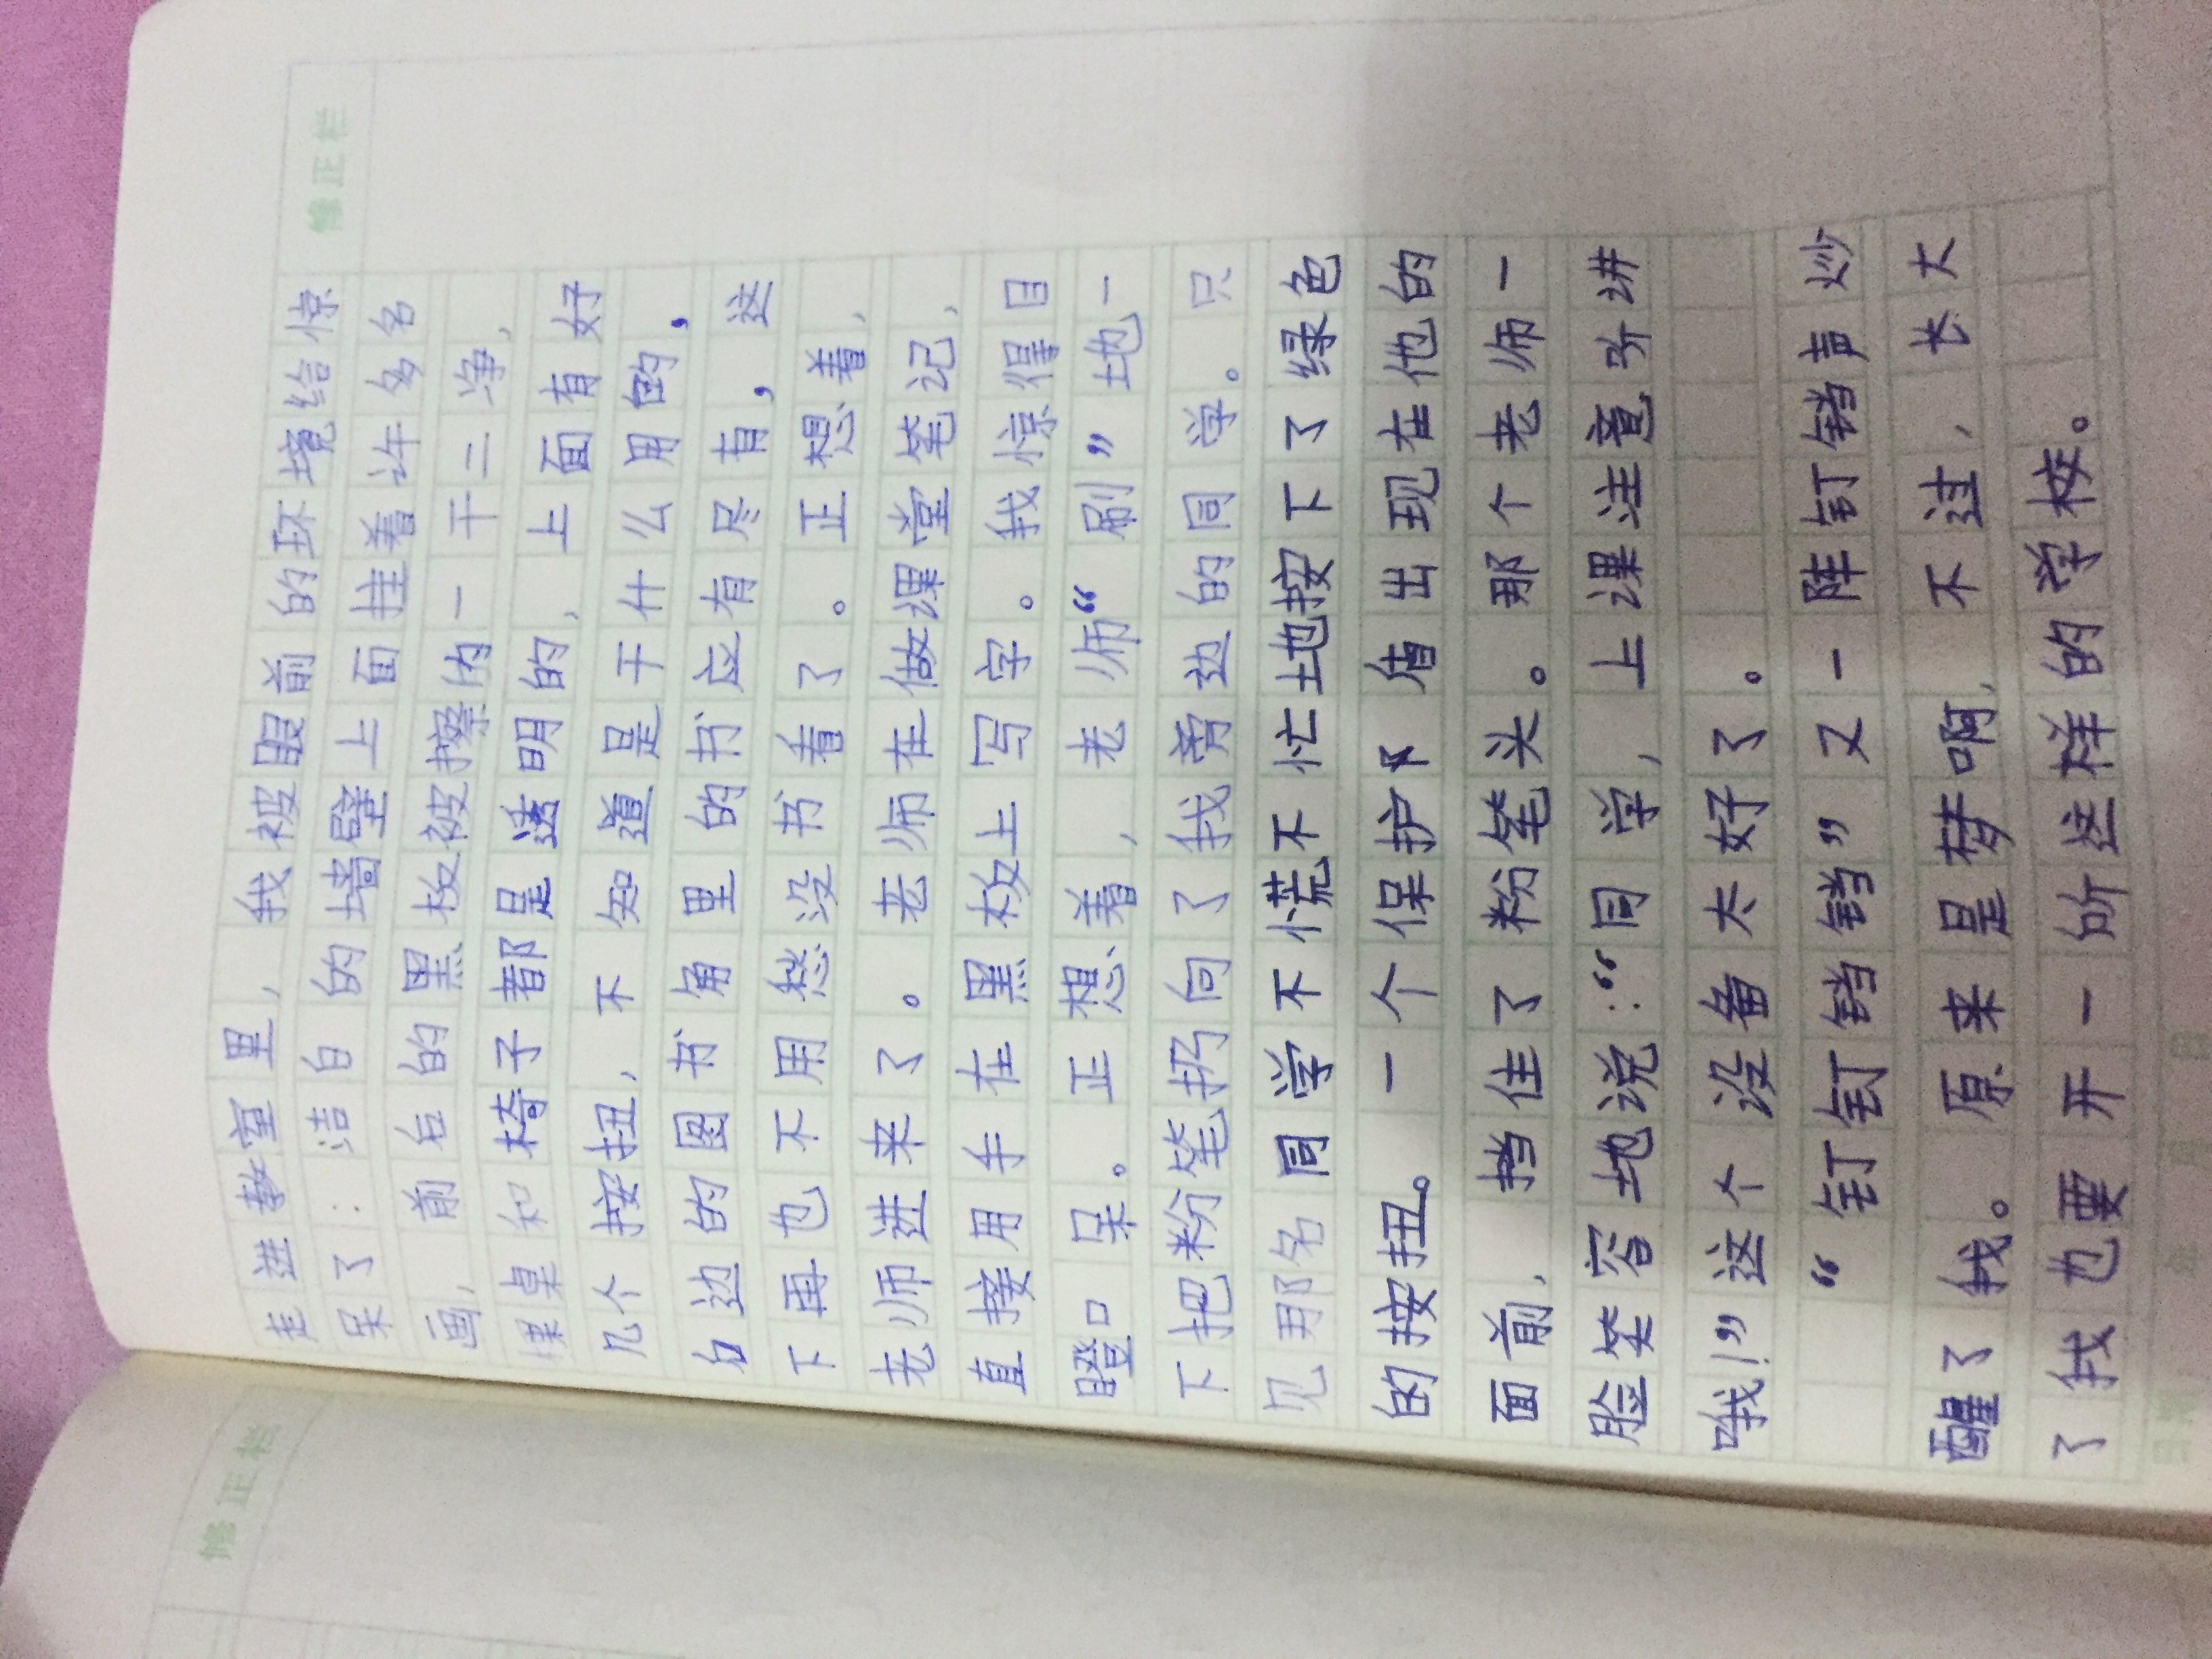 修正栏
走进教室里，我被眼前的环境给惊
呆了：洁白的墙壁上面挂着许多名
画，前后的黑板被擦的一干二净，
课桌和椅子都是透明的，上面有好
几个按扭，不知道是干什么用的，
右边的图书角里的书应有尽有，这
下再也不用愁没书看了。正想着，
老师进来了。老师在做课堂笔记，
直接用手在黑板上写字。我惊得目
瞪口呆。正想着，老师“刷”地一
下把粉笔扔向了我旁边的同学。只
见那名同学不慌不忙地按下了绿色
的按扭。一个保护 出现在他的
面前，挡住了粉笔头。那个老师一
脸笑容地说：“同学，上课注意听讲
哦！”这个设备太好了。
“钉钉铛铛”又一阵钉钉铛声炒
醒了我。原来是梦啊，不过，长大
了我也要开一所这样的学校。
修正栏